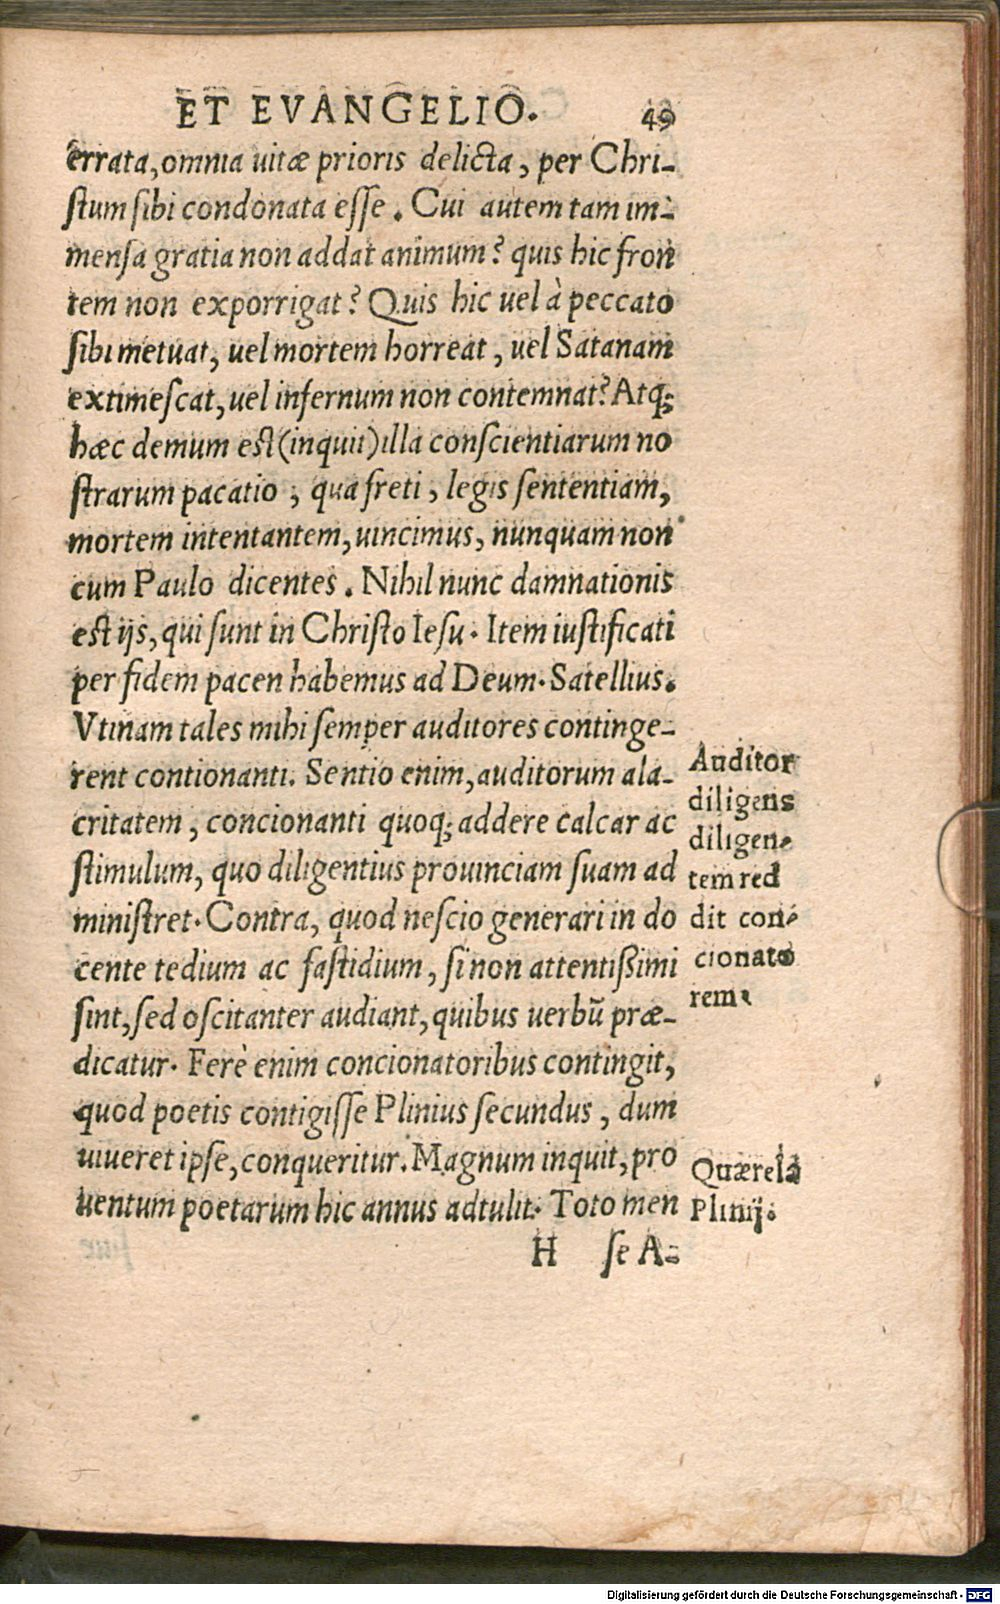 ET EVANGELIO. 49
errata, omnia uitæ prioris delicta, per Chri-
stum sibi condonata esse. Cui autem tam im-
mensa gratia non addat animum? quis hic fron
tem non exporrigat? Quis hic uel à peccato
sibi metuat, uel mortem horreat, uel Satanam
extimescat, uel infernum non contemnat? Atq;
hæc demum est (inquit) illa conscientiarum no
strarum pacatio, qua freti, legis sententiam,
mortem intentantem, uincimus, nunquam non
cum Paulo dicentes. Nihil nunc damnationis
est ijs, qui sunt in Christo Iesu. Item iustificati
per fidem pacen habemus ad Deum. Satellius.
Vtinam tales mihi semper auditores continge-
rent contionanti. Sentio enim, auditorum ala-
critatem, concionanti quoq; addere calcar ac
stimulum, quo diligentius prouinciam suam ad
ministret. Contra, quod nescio generari in do
cente tedium ac fastidium, si non attentißimi
sint, sed oscitanter audiant, quibus uerbũ præ-
dicatur. Ferè enim concionatoribus contingit,
quod poetis contigisse Plinius secundus, dum
uiueret ipse, conqueritur. Magnum inquit, pro
uentum poetarum hic annus adtulit. Toto men
H se A-
Auditor
diligens
diligen-
tem red
dit con-
cionato
rem.
Quærela
Plinij.
Digitalisierung gefördert durch die Deutsche Forschungsgemeinschaft - DFG